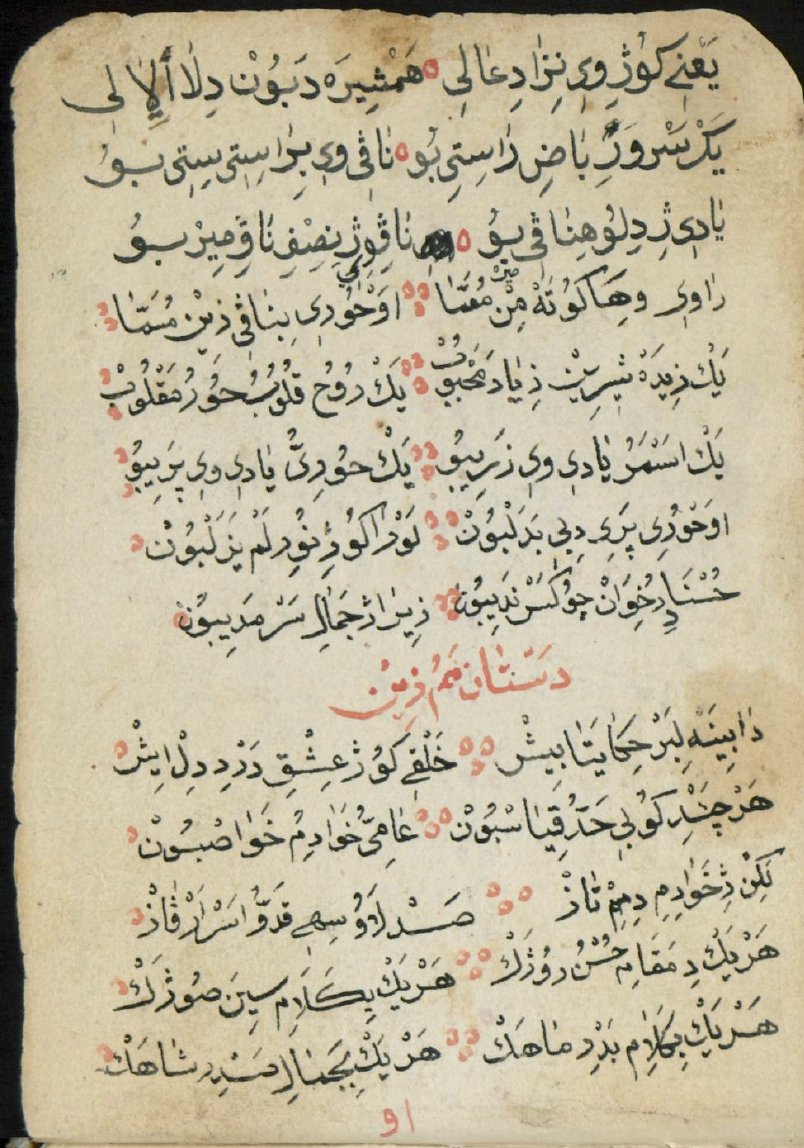 يَعْنِي كُوژِ وِي نِژَادِ عَالِي ٥ هَمْشِيرَه دَبُوْنْ دِلَا ئَالَالِي
يَكْ سَرْوَرِ بَاضِ رَاسِتِي بُو ٥ نَاڤِي وِي بِرَاسِتِي سِتِي بُو
يَادِي ژِ دِلُو هِنَاڤِي بُو ٥ نَاڤِي وِي ژِ نِصْفِ نَاڤِ مِيرْ بُو
رَاوِي وِهَا كُوتَه مِنْ مُعَمَّا اَوْ حُورِي بِنَاڤِي زِينْ مُسَمَّا
يَكْ زِيدَه شِيرِينْ زِيَادَه مَحْبُوبْ يَكْ رُوحِ قُلُوبُ حُورُ مَقْلُوبْ
يَكْ اسْمَرُ يَادِي وِي زَرِي بُو يَكْ حُورِيُّ يَادِي وِي پَرِي بُو
اَوْ حُورِي پَرِي دِبِي بَدَلْ بُوْنْ لَوْرَا كُو ژِ نُورِ لَمْ يَزَلْ بُوْنْ
حُسْنَا دِ خُوَانْ چُو كَسْ نَدِيبُوْنْ ژِيرَا ژِ جَمَالِ سَرْمَدِي بُوْنْ
دستان مم زين
رَابِينَه لِبَرْ حِكَايَتَا بِيشْ خَلْقِي كُو ژِ عِشْقِ دَرْدِ دِلْ اِيشْ
هَرْچَنْدِ كُو بِي حَدُّ قِيَاسْ بُوْنْ عَامِيُّ خَوَادِمُ خَوَاصْ بُوْنْ
لٰكِنْ ژِ خَوَادِمِ دِمُمْتَازْ صَدْ لَاوُ سِهِي قَدُّ اسَرْاَڤْرَازْ
هَرْ يَكْ دِ مَقَامِ حُسْنُ رُوژَكْ هَرْ يَكْ بِكَلَامِ سِينَه صُوژَكْ
هَرْ يَكْ بِكَلَامِ بَدْرِ مَاهَكْ هَرْ يَكْ بِجَمَالِ صَدْرِ شَاهَكْ
او